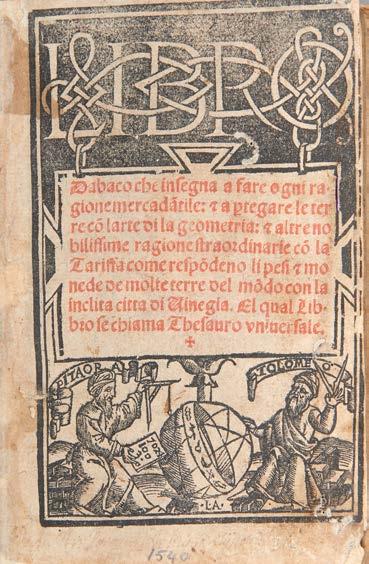 LIBRO
Dabaco che insegna a fare ogni ra-
gione mercadãtile: ⁊ a ptegare le ter
re cõ larte di la geometria: ⁊ altre no
bilissime ragione straordinarie cõ la
Tariffa come respõdeno li pesi ⁊ mo
nede de molte terre del mõdo con la
inclita citta di Uinegia. El qual Lib-
bro se chiama Thesauro vniuersale.
PITAOR
TOLOMEO
.I.A.
1540